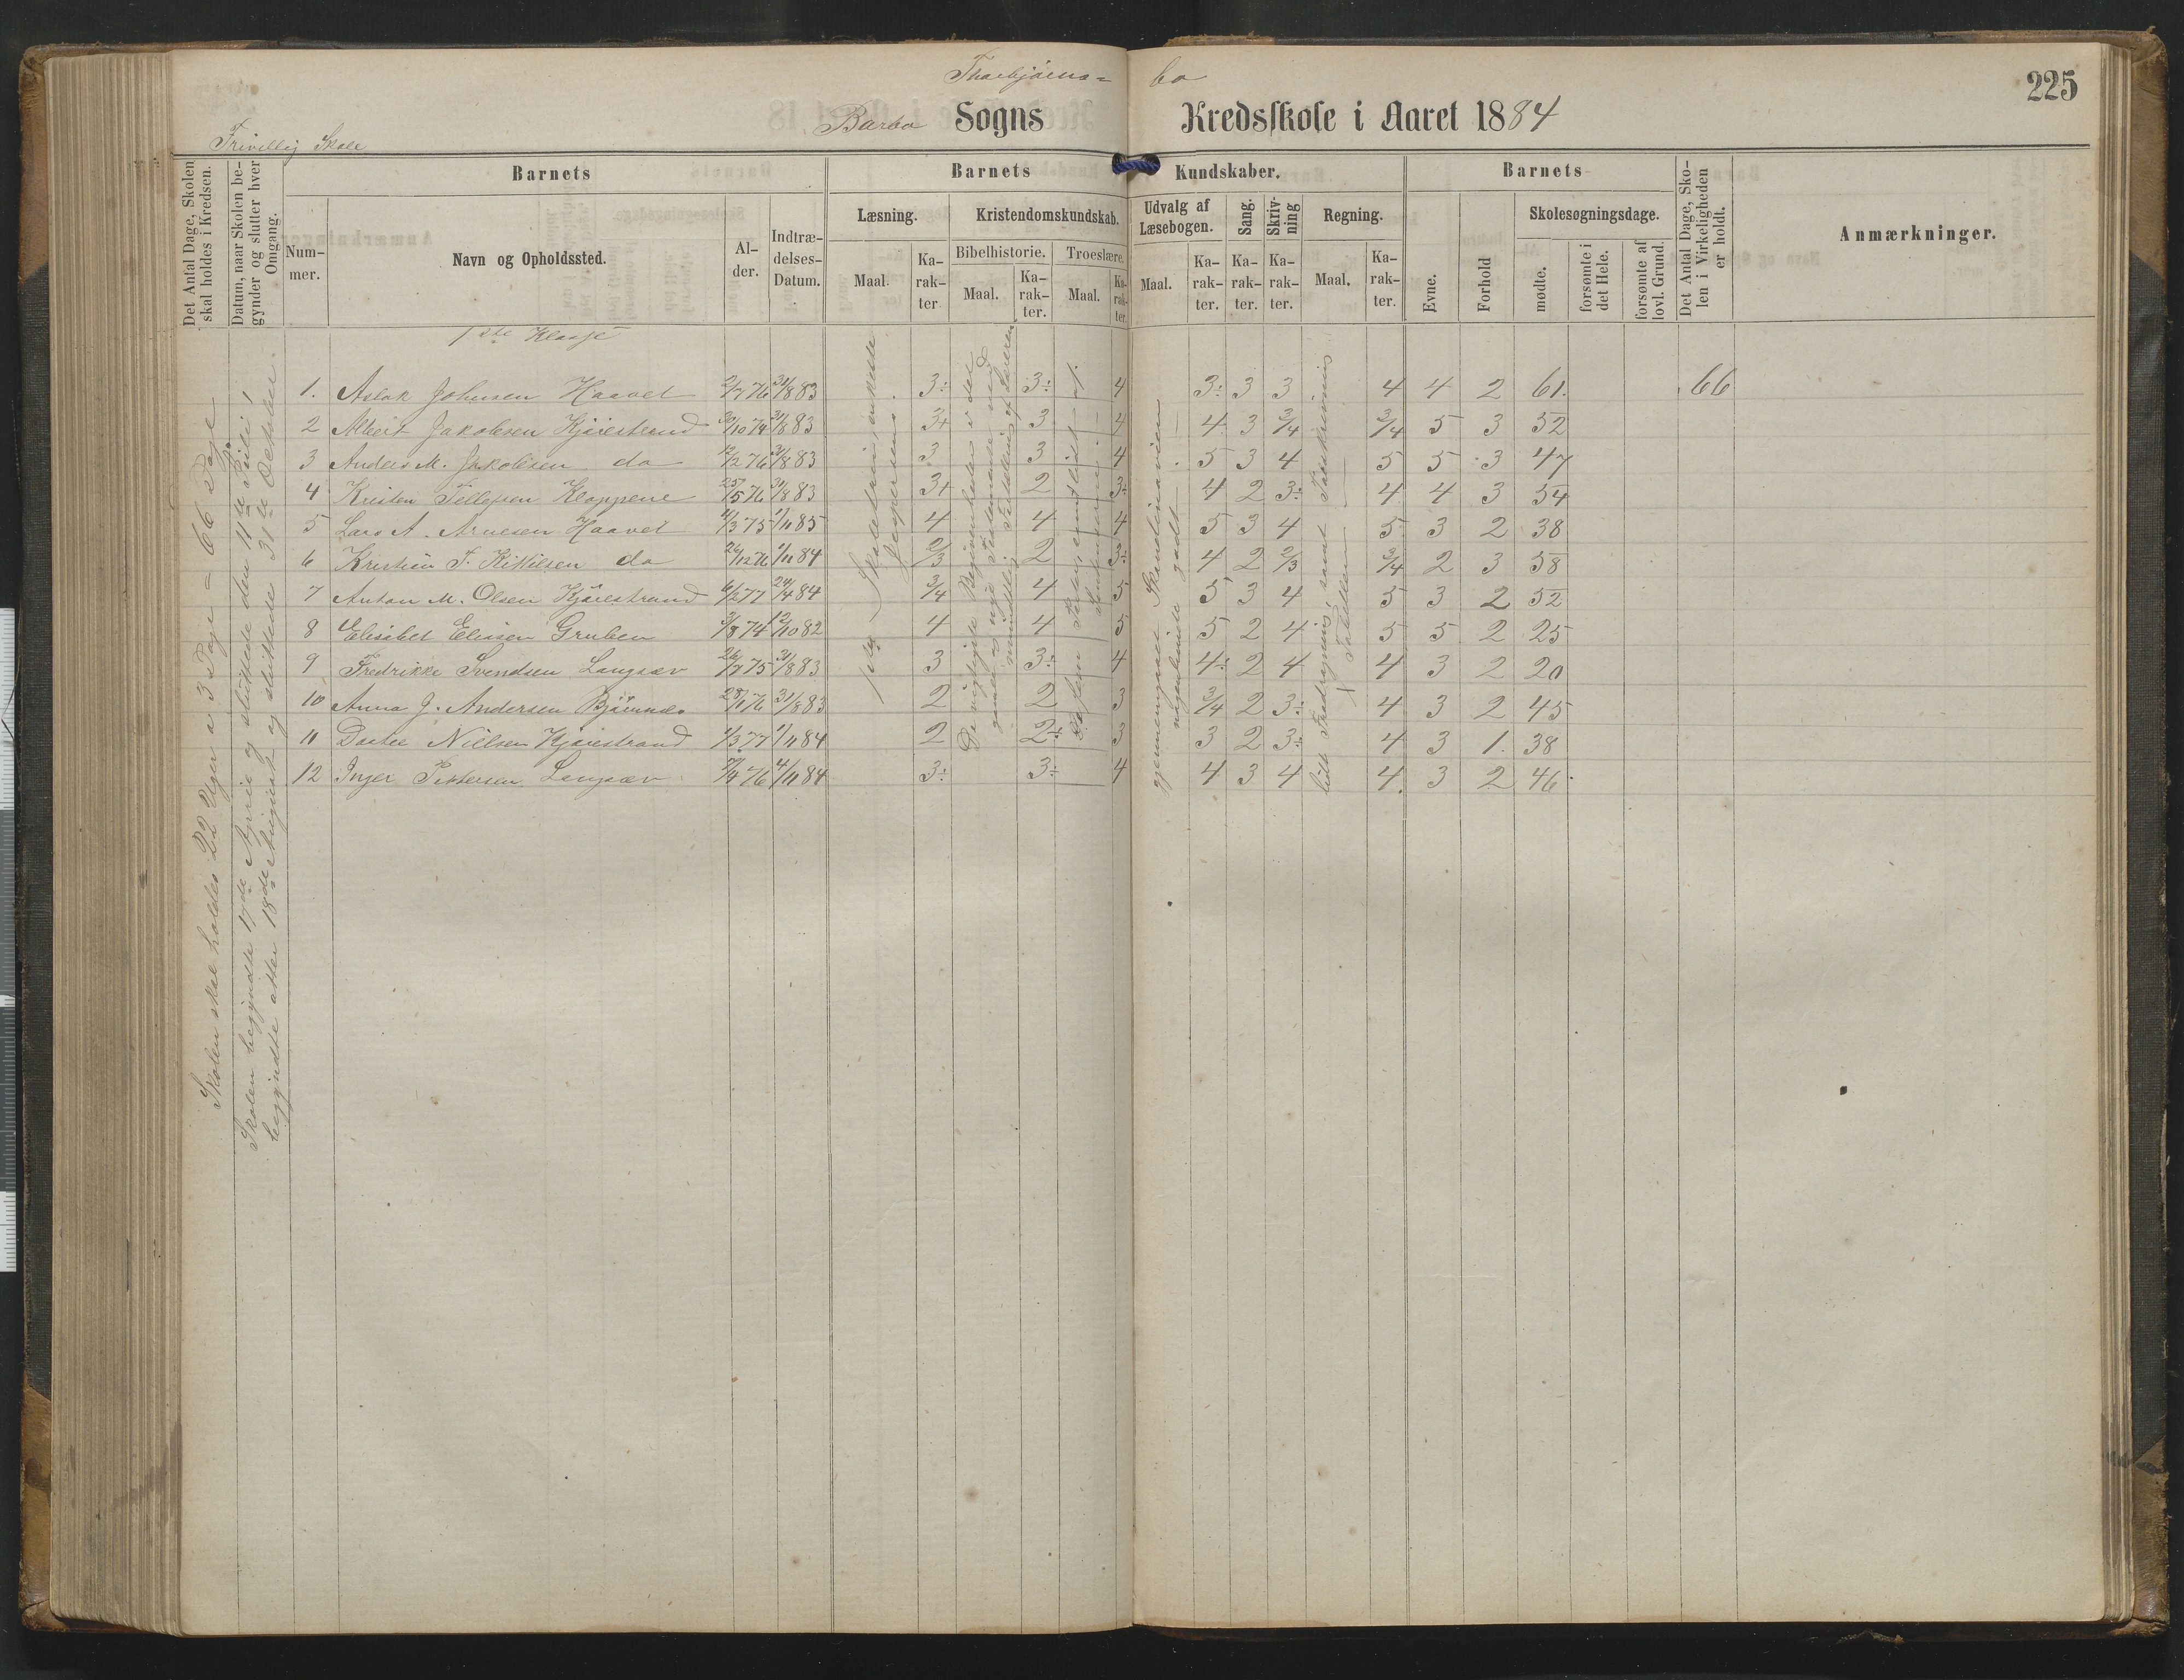 225
Thorbjörns= bo
Barbo Sogns Kredsskole i Aaret 1884
Frivillig Skole
Det Antal Dage, Skolen skal holdes i Kredsen.
Datum, naar Skolen begynder og slutter hver Omgang.
Barnets
Nummer.
Navn og Opholdssted.
Alder.
Indtrædelses-Datum.
Barnets Kundskaber.
Læsning.
Maal.
Karakter
Kristendomskundskab.
Bibelhistorie.
Maal.
Karakter.
Troeslære.
Maal.
Karakter.
Udvalg af Læsebogen.
Maal.
Karakter.
Sang.
Karakter.
Skrivning
Karakter.
Regning.
Maal.
Karakter.
Barnets
Evne.
Forhold
Skolesøgningsdage.
mødte.
forsømte i det Hele.
forsømte af lovl. Grund.
Det Antal Dage, Skolen i Virkeligheden er holdt.
Anmærkninger.
Skolen skal holdes 22 Uger a 3 Dage = 66 Dage
Skolen begyndte 17de April og sluttede den 11te Juli;
begyndte atter 18de August og sluttede 31te October.
1ste Klasse
1. Aslak Johnsen Haavet 2/7 76 31/8 83 3÷ 3÷ 4 3÷ 3 3 4 4 2 61. 66
2 Albert Jakobsen Kjærestrand 30/10 74 31/8 83 3+ 3 4 4 3 3/4 3/4 5 3 52
3 Anders M. Jakobsen do 12/2 76 31/8 83 3 3 4 5 3 4 5 5 3 47
4 Kristen Tellefsen Kloppene 25/5 76 31/8 83 3+ 2 3÷ 4 2 3÷ 4 4 3 54
5 Lars A. Arnesen Haavet 11/3 75 1/11 85 4 4 4 5 3 4 5 3 2 38
6 Kristian T. Kittilsen do 26/12 76 1/11 84 2/3 2 3÷ 4 2 2/3 3/4 2 3 58
7 Anton M. Olsen Kjærestrand 6/2 77 24/4 84 3/4 4 5 5 3 4 5 3 2 52
8 Elisabet Eliasen Gruben 3/8 74 12/10 82 4 4 5 5 2 4 5 5 2 25
9 Fredrikke Svendsen Langsæv 26/7 75 31/8 83 3 3÷ 4 4÷ 2 4 4 3 2 20
10 Anna J. Andersen Bjørnnes 28/1 76 31/8 83 2 2 3 3/4 2 3÷ 4 3 2 45
11 Dorthe Nielsen Kjærestrand 1/3 77 1/11 84 2 2÷ 3 3 2 3÷ 4 3 1. 38
12 Inger Pettersen Langsæv 4/11 84 3÷ 3÷ 4 4 3 4 4. 3 2 46
1ste Skoletrin
De vigtigste Begivenheder i det
gamle og nye Testamente ved
mundtlig Fortælling af Læreren
gjennemgaaet Skandinavien
nogenlunde godt
lidt Fradragning, samt
Tabellen